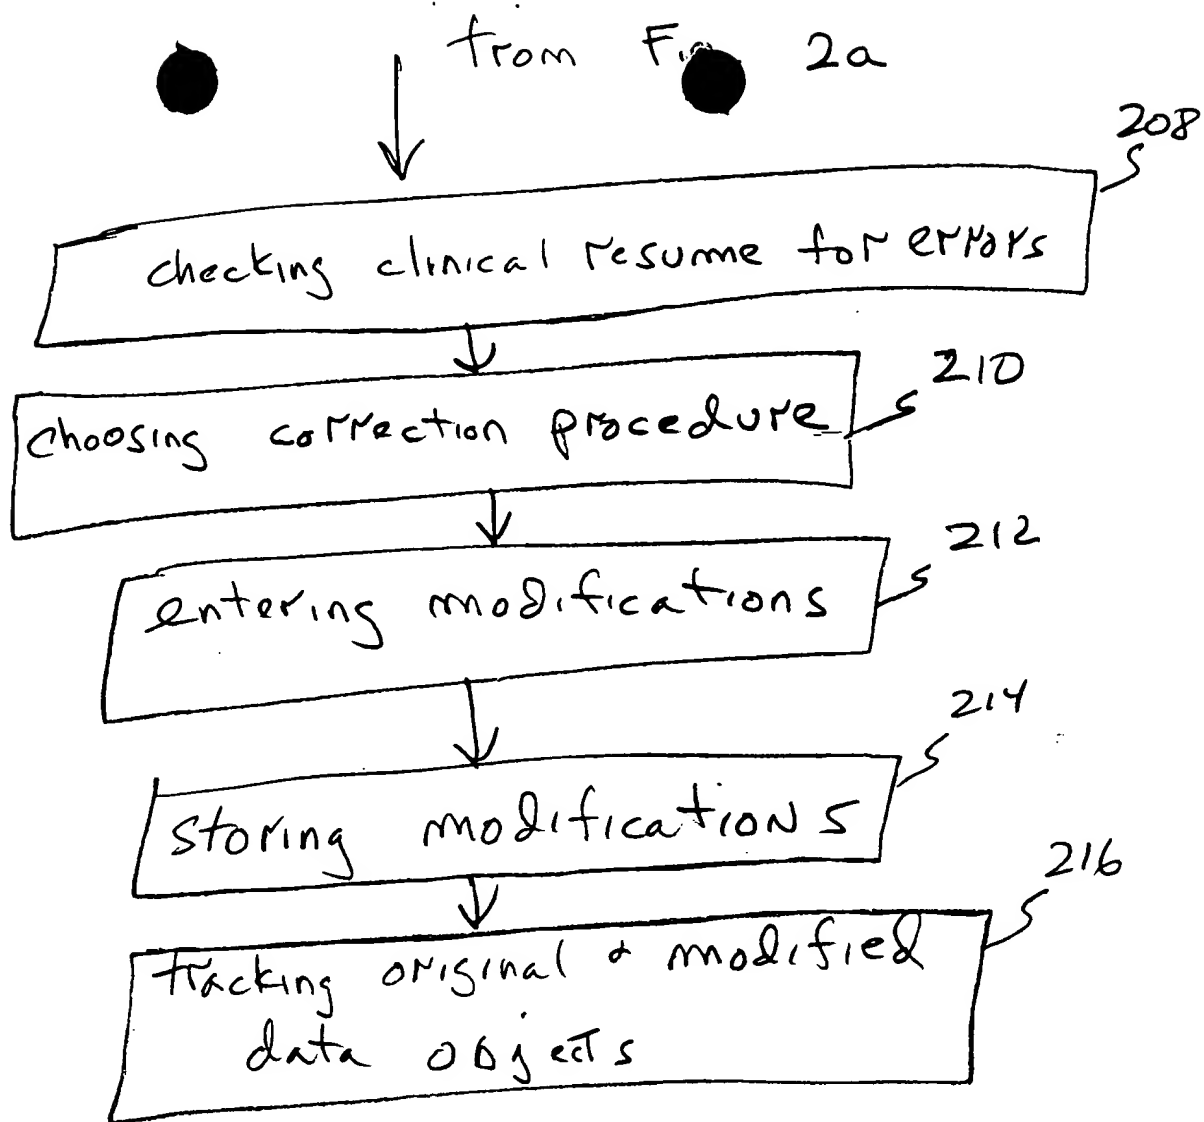 from Fig 2a
208
checking clinical resume for errors
210
choosing correction procedure
212
entering modifications
214
storing modifications
216
tracking original & modified
data objects